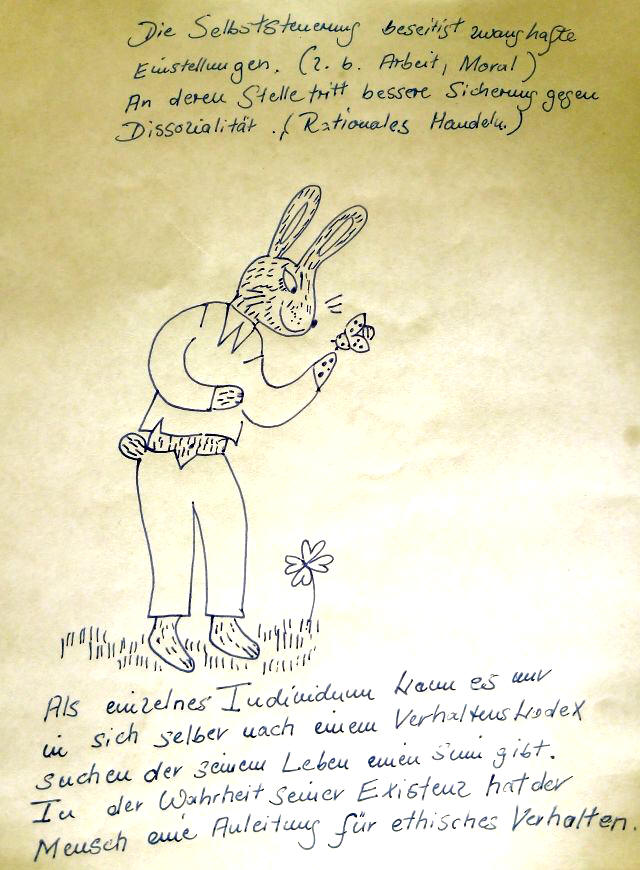 Die Selbststeuerung beseitigt zwanghafte
Einstellungen. (z. b. Arbeit, Moral)
An deren Stelle tritt bessere Sicherung gegen
Dissozialität. (Rationales Handeln.)
Als einzelnes Individuum kann es nur
in sich selber nach einem Verhaltenskodex
suchen der seinem Leben einen Sinn gibt.
In der Wahrheit seiner Existenz hat der
Mensch eine Anleitung für ethisches Verhalten.